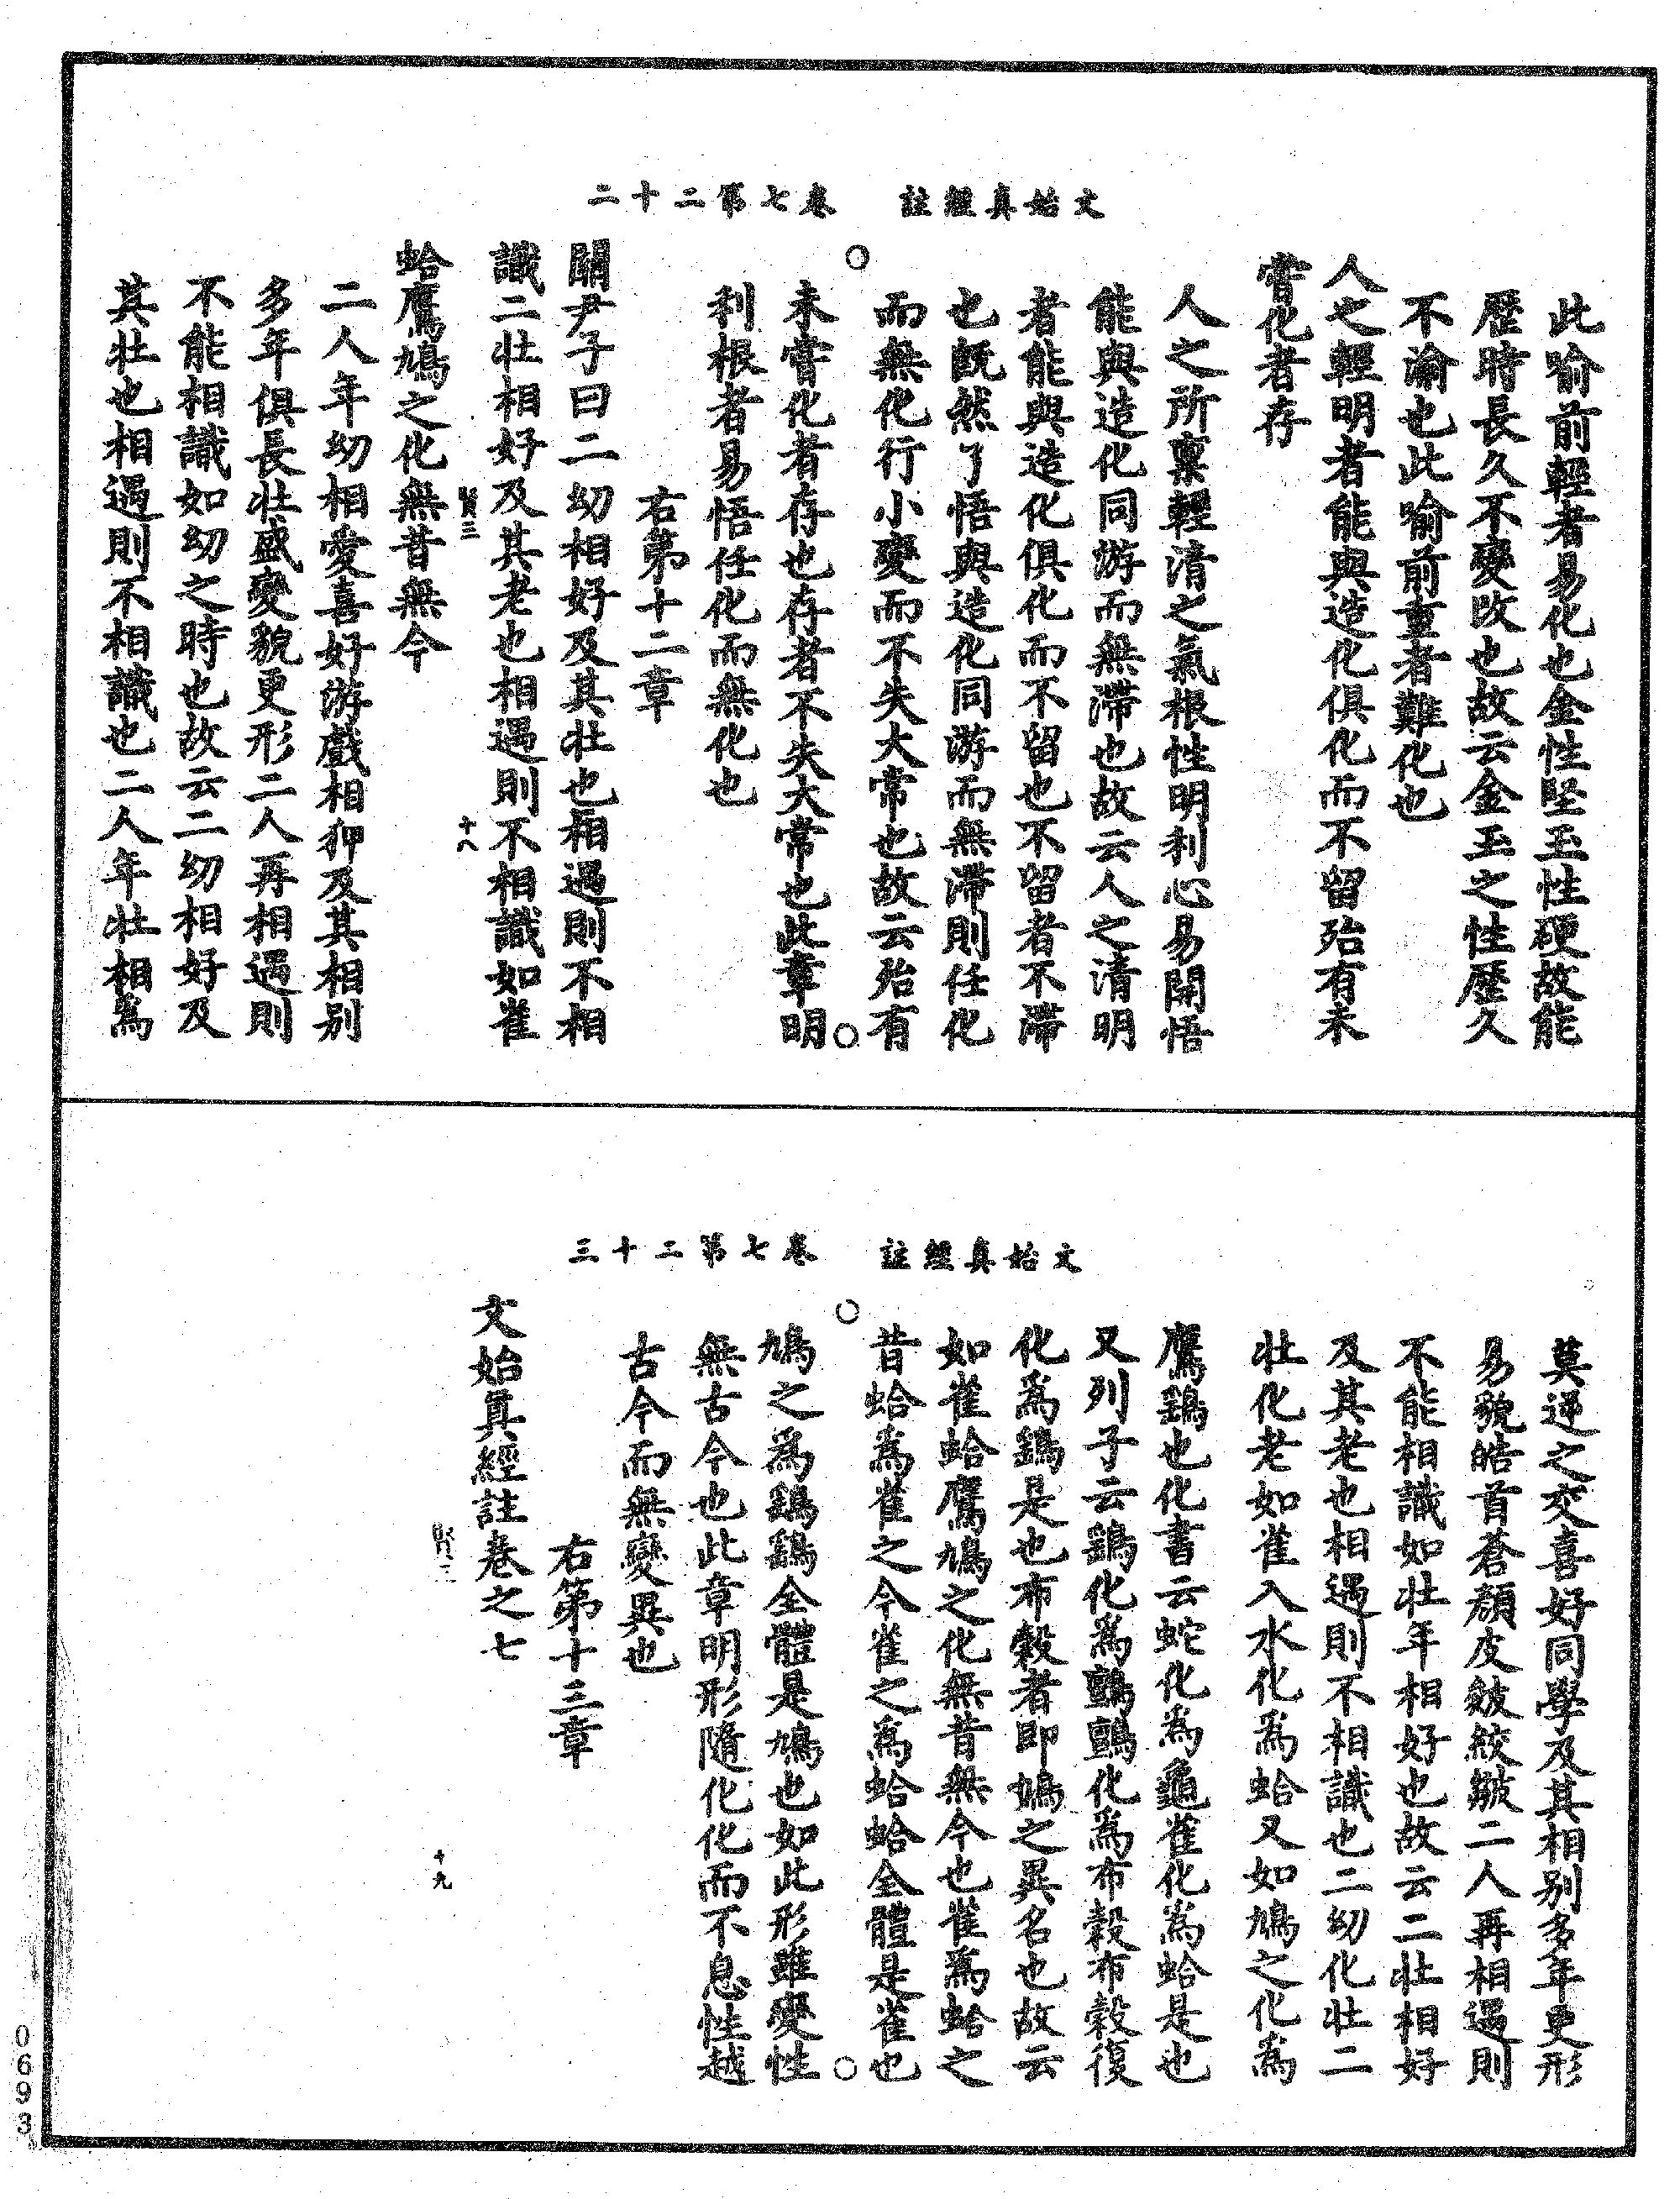 文始真經註　卷七第二十二
此喻前輕者易化也金性堅玉性硬故能
歷時長久不變改也故云金玉之性歷久
不渝也此喻前重者難化也
人之輕明者能與造化俱化而不留殆有未
嘗化者存
人之所稟輕清之氣根性明利心易開悟
能與造化同游而無滯也故云人之清明
者能與造化俱化而不留也不留者不滯
也既然了悟與造化同游而無滯則任化
而無化行小變而不失大常也故云殆有
未嘗化者存也存者不失大常也此章明
利根者易悟任化而無化也
右第十二章
關尹子曰二幼相好及其壯也相遇則不相
識二壯相好及其老也相遇則不相識如雀
賢三　十八
蛤鷹鳩之化無昔無今
二人年幼相愛喜好游戲相狎及其相別
多年俱長壯盛變貌更形二人再相遇則
不能相識如幼之時也故云二幼相好及
其壯也相遇則不相識也二人年壯相為
文始真經註　卷七第二十三
莫逆之交喜好同學及其相別多年更形
易貌皓首蒼顏皮皴紋皺二人再相遇則
不能相識如壯年相好也故云二壯相好
及其老也相遇則不相識也二幼化壯二
壯化老如雀入水化為蛤又如鳩之化為
鷹鷂也化書云蛇化為龜雀化為蛤是也
又列子云鷂化為鸇鸇化為布穀布穀復
化為鷂是也布穀者即鳩之異名也故云
如雀蛤鷹鳩之化無昔無今也雀為蛤之
昔蛤為雀之今雀之為蛤蛤全體是雀也
鳩之為鷂鷂全體是鳩也如此形雖變性
無古今也此章明形隨化化而不息性越
古今而無變異也
右第十三章
文始真經註卷之七
賢三　十九
0693